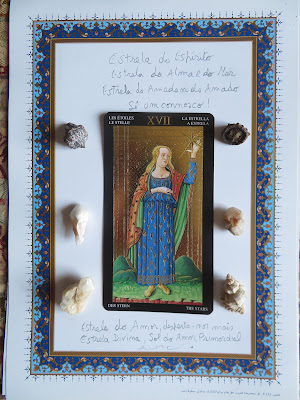 Estrela do Espírito
Estrela da Alma e do Mar
Estrela do Amado e da Amada
Sê um connosco!
LES ÉTOILES
LE STELLE
XVII
LA ESTRELLA
A ESTRELA
DER STERN
THE STARS
Estrela do Amor, desperta-nos mais
Estrela Divina, Sol do Amor Primordial